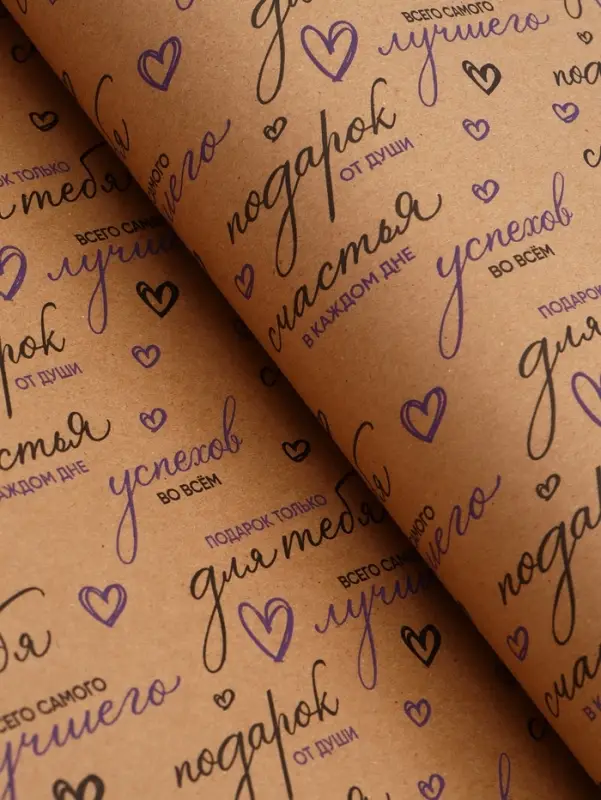 ВСЕГО САМОГО
лучшего
подарок
ОТ ДУШИ
под
счастья
В КАЖДОМ ДНЕ
успехов
ВО ВСЁМ
ПОДАРОК
для
САМОГО
лучшего
ОК ТОЛЬКО
тебя
ВСЕГО САМО
лучшего
рок
ОТ ДУШИ
стья
АЖДОМ ДНЕ
успехов
ВО ВСЁМ
ПОДАРОК ТОЛЬКО
для тебя
ВСЕГО САМО
САМОГО
шего
подар
бя
ВСЕГО САМОГО
лучшего
подарок
ОТ ДУШИ
сча
В К